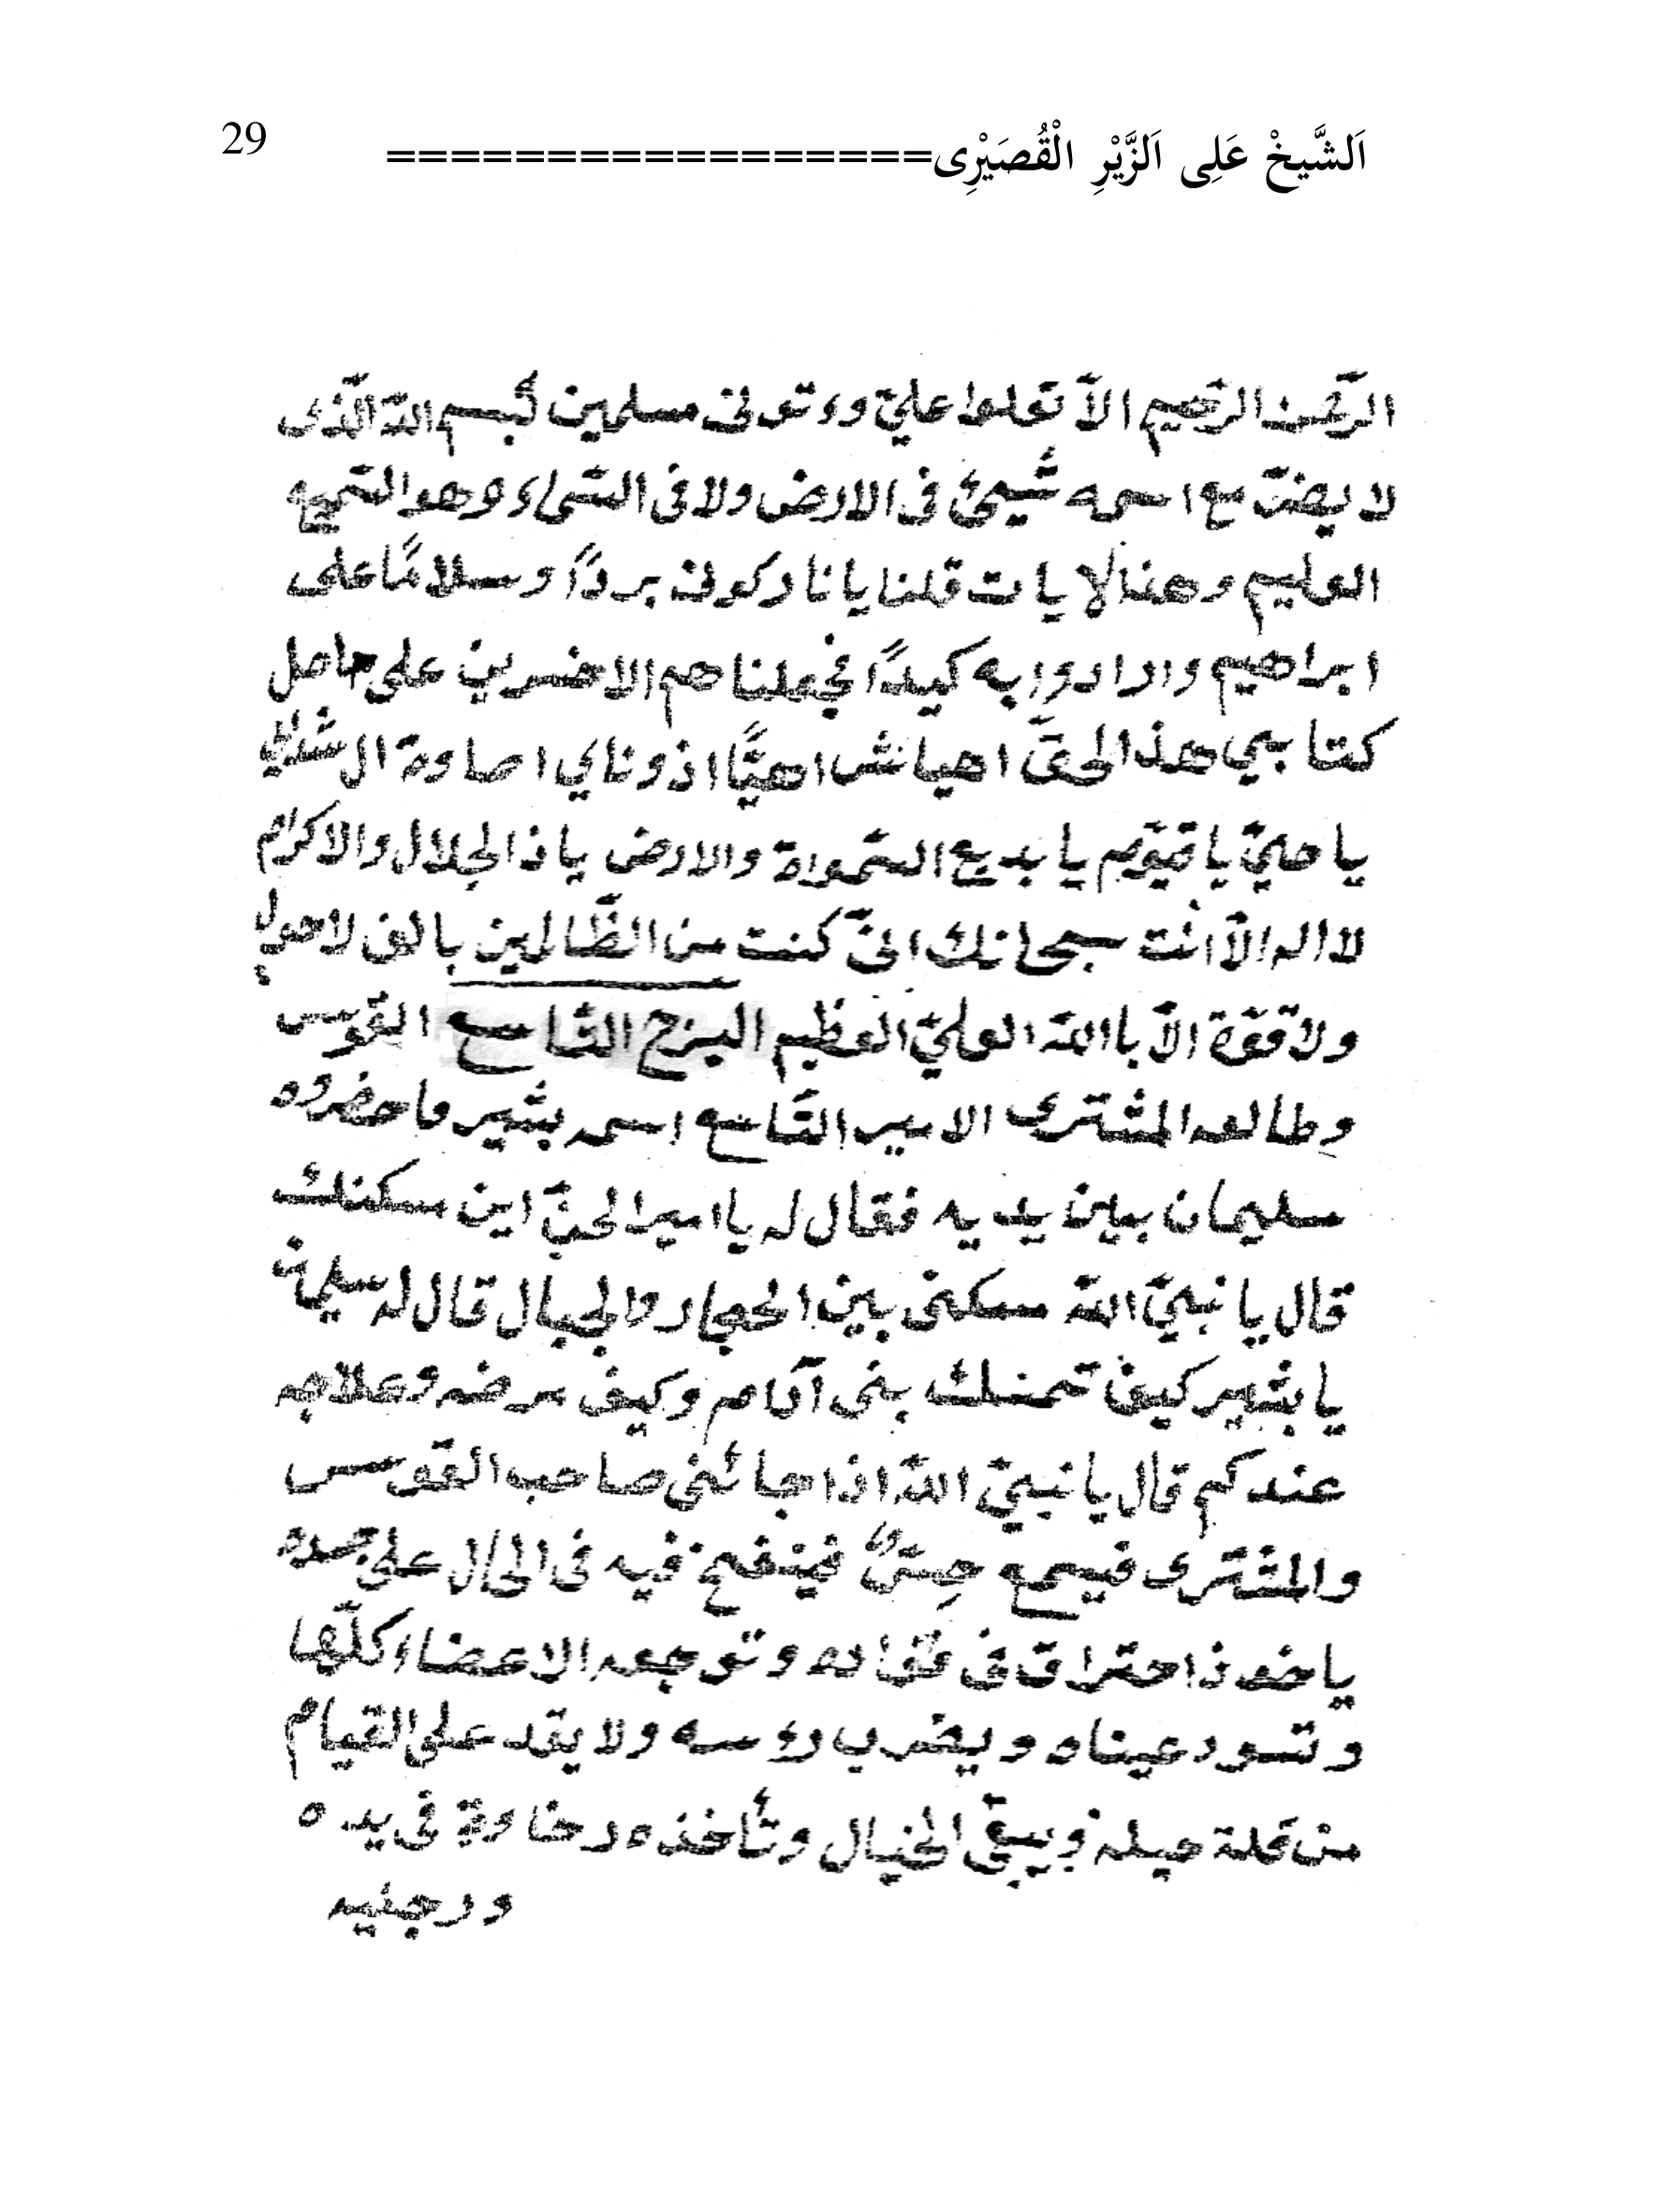 اَلشَّيخْ عَلِى اَلزَّيْرِ الْقُصَيْرِى================= 29
الرّحمن الرّحيم الاّ تعلوا عليّ وءتونى مسلمين بسم اللّه الّذى
لا يضرّ مع اسمه شيئ فى الارض ولا فى السّماء وهو السّميع
العليم وهذالايات قلنا يا نار كونى برداً وسلامًا على
ابراهيم وارادوا به كيداً فجعلناهم الاخسرين على حامل
كتابي هذالحقّ اهيا نش اهيًّا اذوناي اصاوة ال شداي
يا حيّ يا قيّوم يا بديع السّمواة والارض يا ذالجلال والاكرام
لا اله الاّ انت سبحانك انىّ كنت من الظّالمين بالف لاحول
ولا قوّة الاّ باللّه العليّ العظيم البرج التّاسع القوس
وطالعه المشترى الامير التّاسع اسمه بشير فاحضروه
سليمان بين يديه فقال له يا امير الجنّ اين مسكنك
قال يا نبيّ اللّه مسكنى بين الحجار والجبال قال له سليمان
يا بشير كيف تمسك بنى آدام وكيف مرضه وعلاجه
عندكم قال يا نبيّ اللّه اذا جائنى صاحب القوس
والمشترى فيسمع حِسّى فينفخ فيه فى الحال على جسده
ياخوذ احتراق فى فؤاده وتوجعه الاعضاء كلّها
وتسود عيناه ويضرب رؤسه ولا يقد على القيام
من قلة حيله ويبقى الخيال وتأخذه رخاوة فى يده
ورجليه